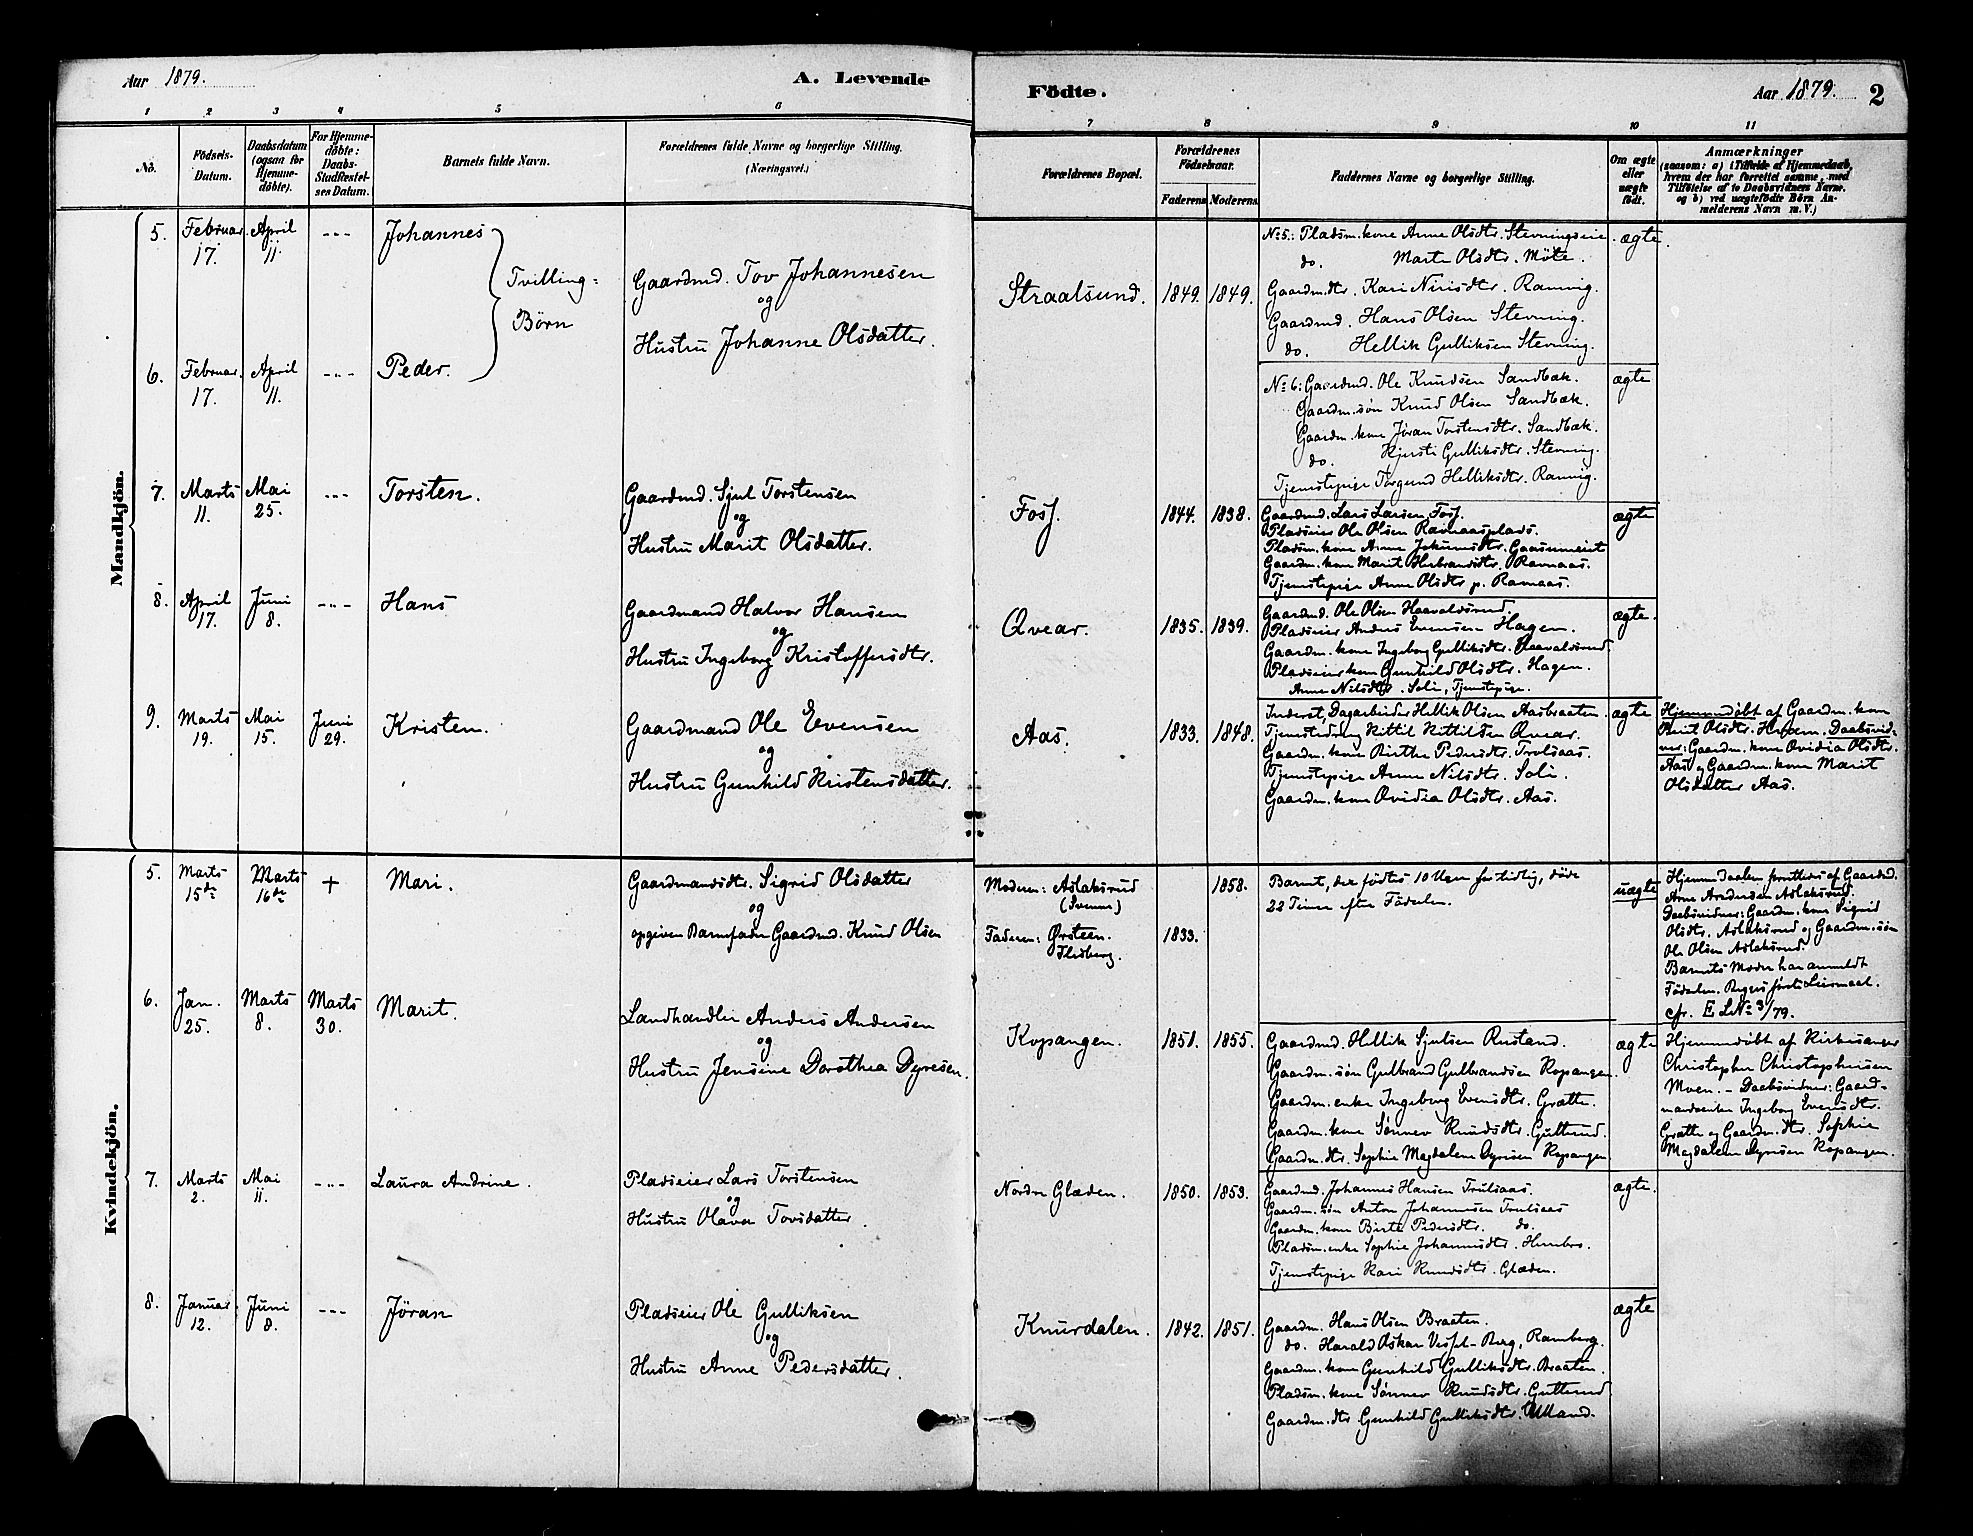 Aar 1879.
A. Levende
1 2 3 4 5 6
No.
Födsels-
Datum.
Daabsdatum
(ogsaa for
Hjemme-
döbte).
For Hjemme-
döbte:
Daabs-
Stadfæstel-
ses Datum.
Barnets fulde Navn.
Forældrenes fulde Navne og borgerlige Stilling.
(Næringsvei.)
Mandkjön.
5. Februar 17. April 11. -"- Johannes
Tvilling-
Børn
Gaardmd. Tov Johannesen
og
Hustru Johanne Olsdatter.
6. Februar 17. April 11. -"- Peder.
7. Marts 11. Mai 25. -"- Torsten.
Gaardmd. Sjul Torstensen
og
Hustru Marit Olsdatter.
8. April 17. Juni 8. -"- Hans
Gaardmand Halvor Hansen
og
Hustru Ingeborg Kristoffersdtr.
9. Marts 19. Mai 15. Juni 29. Kristen.
Gaardmand Ole Evensen
og
Hustru Gunhild Kristensdatter.
Kvindekjön.
5. Marts 15de Marts 16de + Mari.
Gaardmandsdtr. Sigrid Olsdatter
og
opgiven Barnefader Gaardmd. Knud Olsen
6. Jan. 25. Marts 8. Marts 30. Marit.
Landhandler Anders Andersen
og
Hustru Jensine Dorothea Dyresen.
7. Marts 2. Mai 11. -"- Laura Andrine.
Pladseier Lars Torstensen
og
Hustru Olava Tovsdatter.
8. Januar 12. Juni 8. -"- Jöran
Pladseier Ole Gulliksen
og
Hustru Anne Pedersdatter.
Födte.
Aar 1879. 2
7 8 9 10 11
Forældrenes Bopæl.
Forældrenes
Födselsaar.
Faderens Moderens
Faddernes Navne og borgerlige Stilling.
Om ægte
eller
uægte
født.
Anmærkninger
(saasom: a) i Tilfælde af Hjemmedaab,
hvem der har forrettet samme, med
Tilföielse af to Daabsvidners Navne,
og b) ved uægtefödte Börn An-
melderens Navn m.V.)
Straalsund. 1849. 1849.
No 5: Pladsm. kone Anne Olsdtr. Stevningseie. ægte.
do. Marte Olsdtr. Möte.
Gaardm.dtr. Kari Nirisdtr. Ramvig.
Gaardmd. Hans Olsen Stevning.
do. Hellik Gulliksen Stevning.
No 6: Gaardmd. Ole Knudsen Sandbæk. ægte
Gaardm.søn Knud Olsen Sandbæk.
Gaardm. kone Jøran Torstensdtr. Sandbæk.
do. Kjersti Gulliksdtr. Stevning.
Tjenestepige Torgund Helliksdtr. Ramvig.
Fosf. 1844. 1838.
Gaardmd. Lars Larsen Fosf. ægte
Pladseier Ole Olsen Ravnaasplads.
Pladsm. kone Anne
Gaardm. kone Marit Ravnaas.
Tjenestepige Anne Olsdtr p. Ravnaas.
Qvear. 1835. 1839.
Gaardmd. Ole Olsen Haavaldsrud. ægte.
Pladseier Anders Evensen Hagen.
Gaardm. kone Ingeborg Gulliksdtr. Haavaldsrud
Pladseier kone Gunhild Olsdtr. Hagen.
Anne Nilsdtr. Soli, Tjenstepige.
Aas. 1833. 1848.
Inderst, Dagarbeider Hellik Olsen Aasbraaten. ægte
Tjenstedreng Kittil Kittilsen Qvear.
Gaardm. kone Birthe Pedersdtr. Trulsaas.
Tjenstepige Anne Nilsdtr. Soli.
Gaardm. kone Ovidia Olsdtr. Aas.
Hjemmedøbt af Gaardm. kone
Olsdtr. Hvam. Daabsvid-
ner: Gaardm. kone Ovidia Olsdtr.
Aas og Gaardm. kone Marit
Olsdatter Aas.
Moderen: Aslaksrud
(Svene)
1858.
Faderen: Ørsteen.
Flesberg.
1833.
Barnet, der fødtes 10 Uger for tidlig, døde
22 Timer efter Fødselen.
uægte
Hjemmedaaben forrettedes af Gaardmd.
Arne Aslaksrud.
Daabsvidner: Gaardm. kone Sigrid
Olsdtr. Aslaksrud og Gaardm. søn
Ole Olsen Aslaksrud.
Barnets Moder har anmeldt
Fødselen. Begges første Leiermaal.
cfr. E L No 3/79.
Kopangen. 1851. 1855.
Gaardmd. Hellik Sjulsen Rustand. ægte
Gaardm. søn Gulbrand Gulbrandsen Kopangen.
Gaardm. enke Ingeborg Evensdtr. Grætte.
Gaardm. kone Sønnev Knudsdtr. Gutterud.
Gaardm. dtr. Sophie Magdalene Dyresen Kopangen
Hjemmedøbt af Kirkesanger
Christopher Christophersen
Moen. - Daabsvidner: Gaard-
mandsenke Ingeborg Evensdtr.
Grætte og Gaardm. dtr. Sophie
Magdalene Dyresen Kopangen.
Nordre Glæden. 1850. 1853.
Gaardmd. Johannes Hansen Trulsaas. ægte.
Gaardm. søn Anton Johannesen Trulsaas
Gaardm. kone Birte Pedersdtr. do.
Pladsm. enke Sophie Johannesdtr.
Tjenstepige Kari Knudsdtr. Glæden.
Knurdalen. 1842. 1851.
Gaardm. Hans Olsen Braaten. ægte
do. Harald Oskar Berg, Ramberg.
Gaardm. kone Gunhild Gulliksdtr. Braaten.
Pladsm. kone Sønnev Knudsdtr. Gutterud
Gaardm. dtr. Gunhild Gulliksdtr. Ulland.